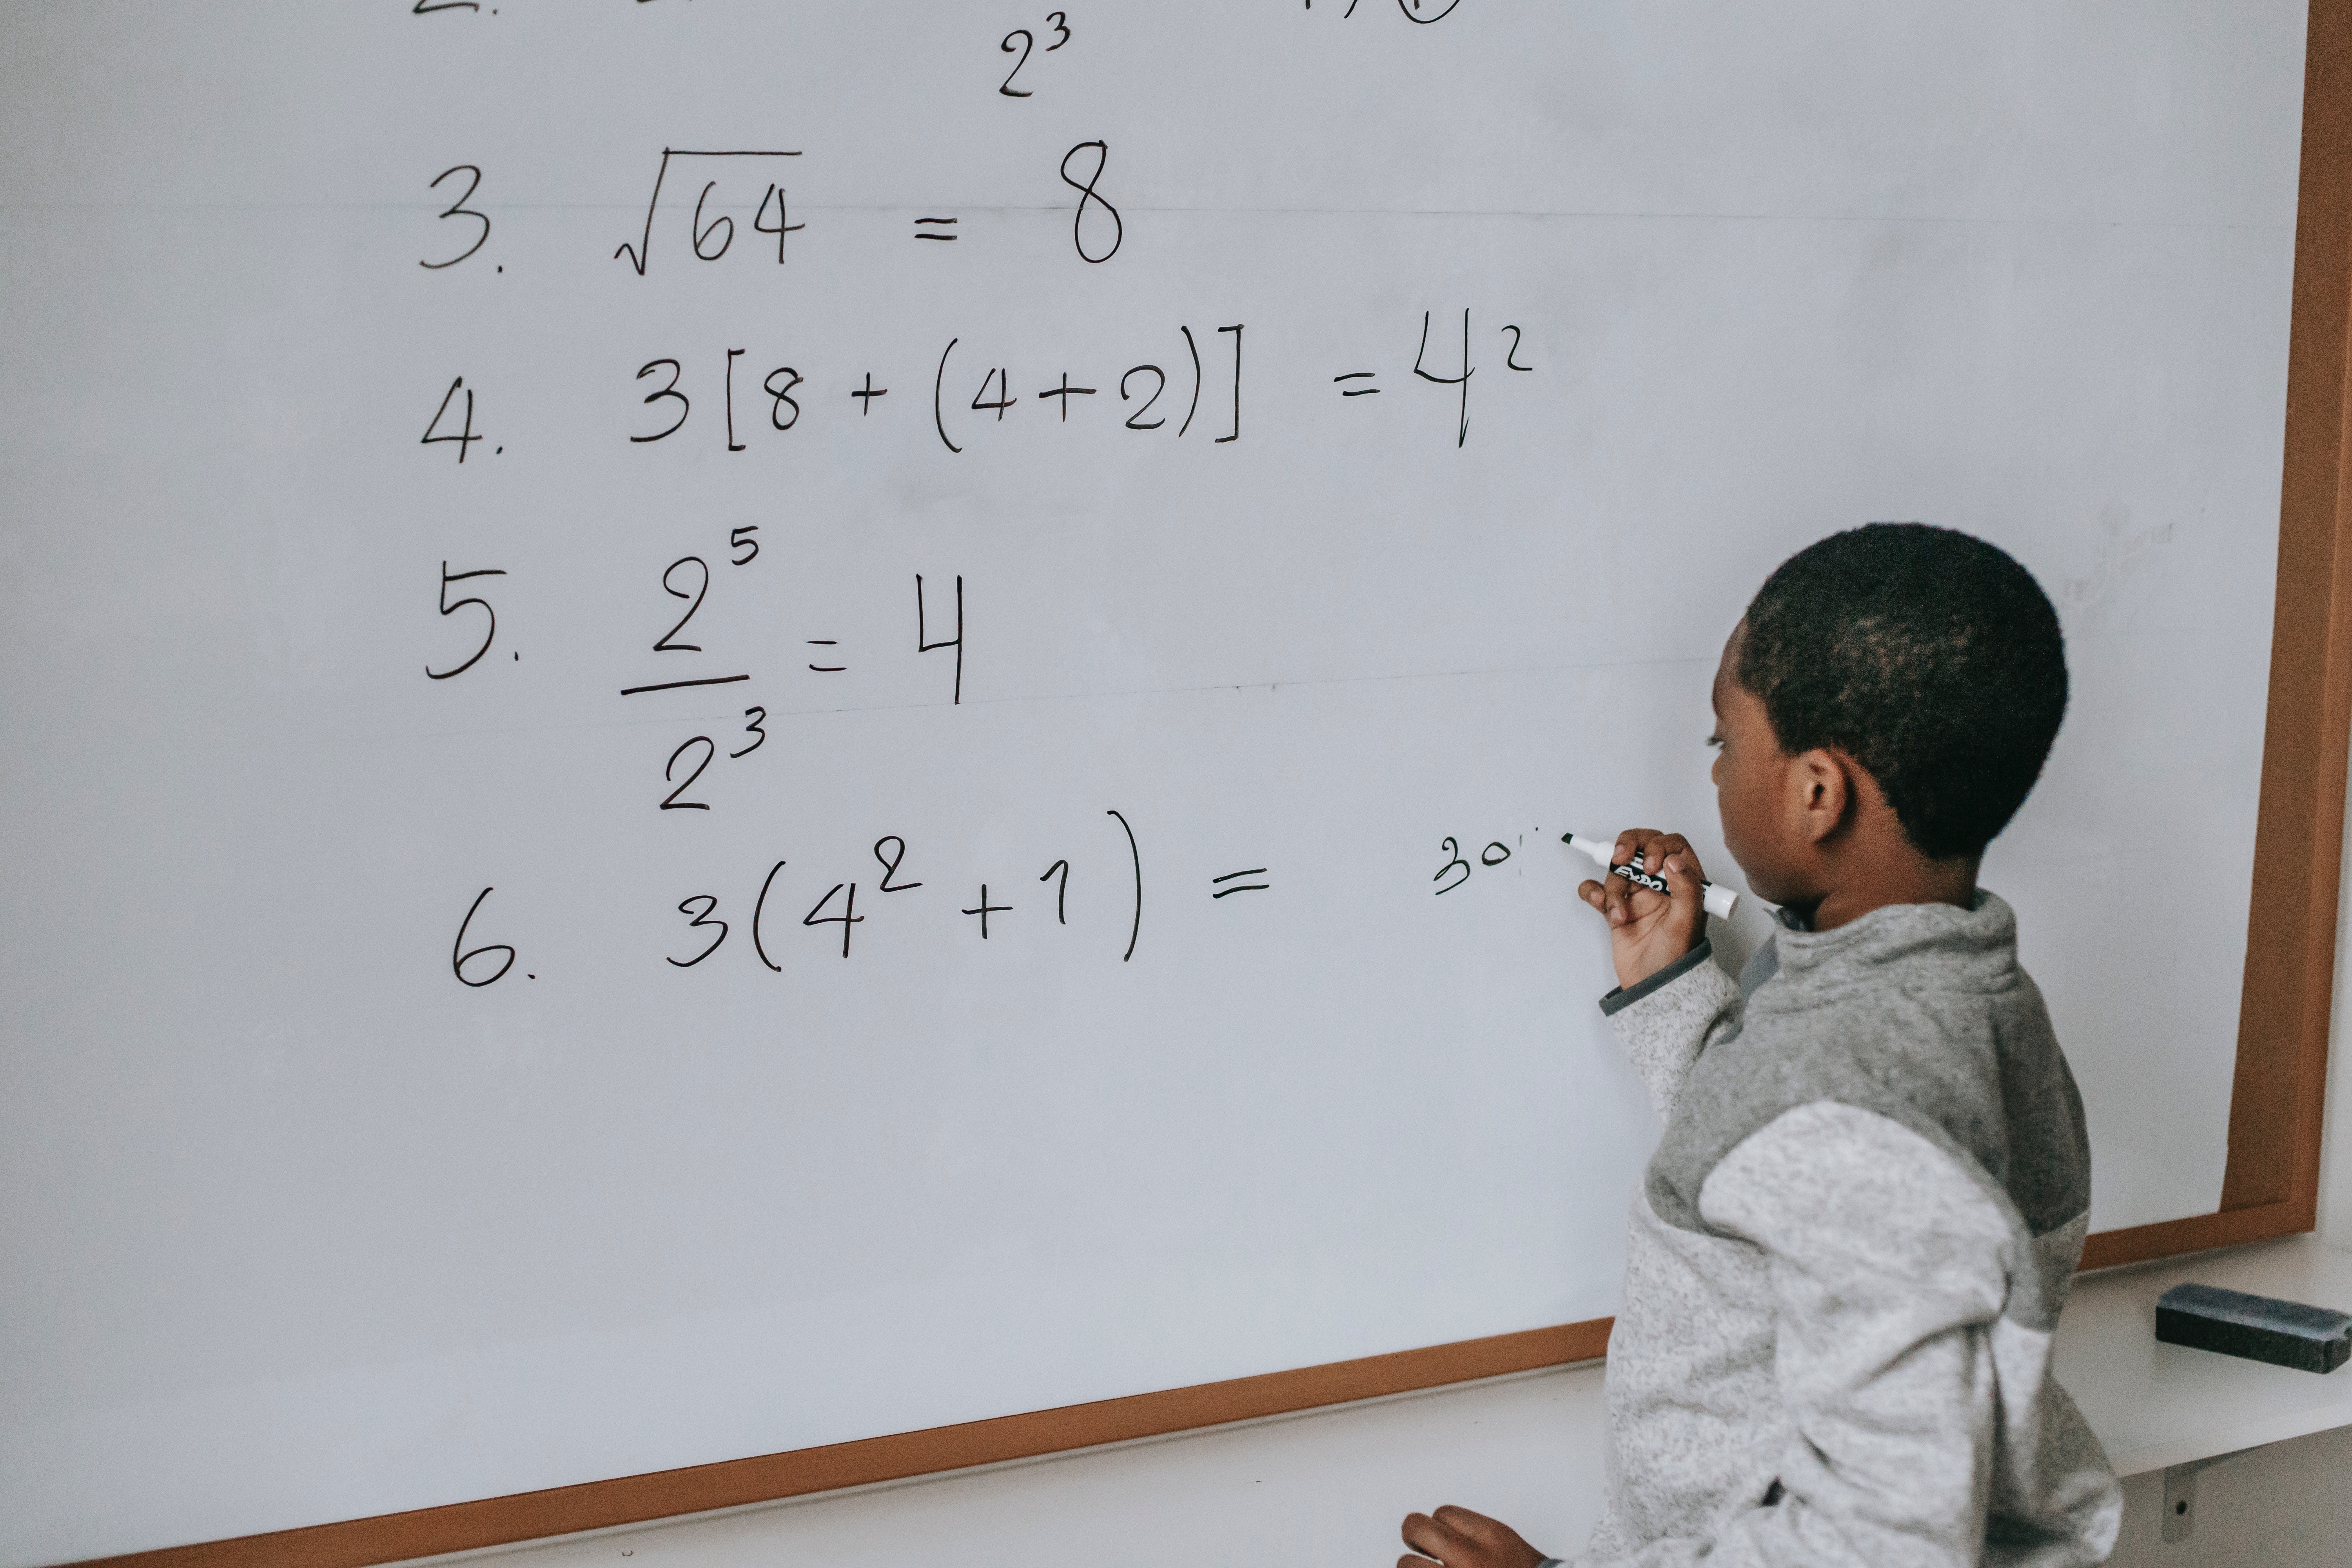 2.
2³
3. √64 = 8
4. 3[8 + (4+2)] = 4²
5. 2⁵/2³ = 4
6. 3(4² + 1) = 30
EXPO